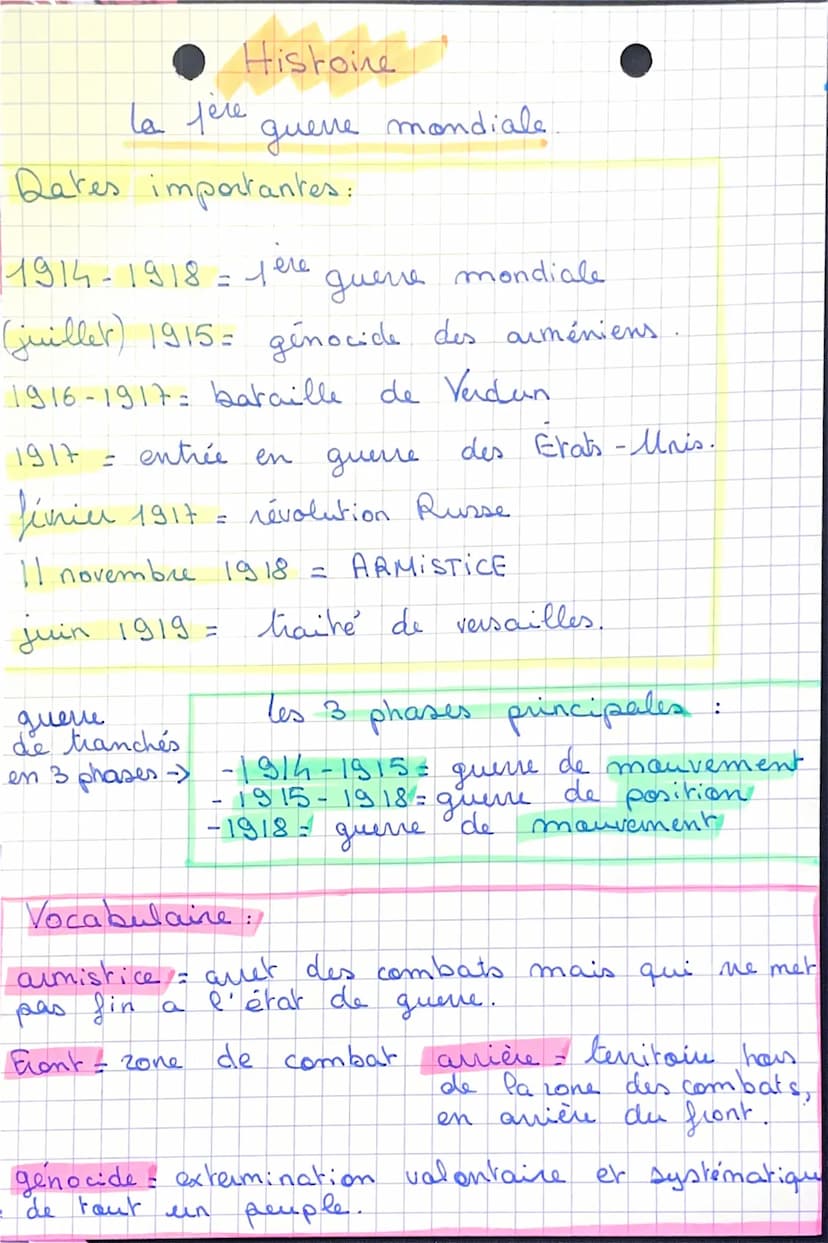 Histoire
la 1ère guerre mondiale.
Dates importantes :
1914-1918 = 1ère guerre mondiale
(juillet) 1915 = génocide des arméniens.
1916-1917 = bataille de Verdun
1917 = entrée en guerre des États-Unis.
février 1917 = révolution Russe
11 novembre 1918 = ARMiSTiCE
juin 1919 = traité de versailles.
guerre
de tranchés
en 3 phases ->
les 3 phases principales :
- 1914-1915 = guerre de mouvement
- 1915-1918 = guerre de position
- 1918 = guerre de mouvement
Vocabulaire :
armistice = arret des combats mais qui ne met
pas fin a l'état de guerre.
Front = zone de combat
arrière = territoire hors
de la zone des combats,
en arrière du front.
génocide = extermination volontaire et systématique
de tout un peuple.